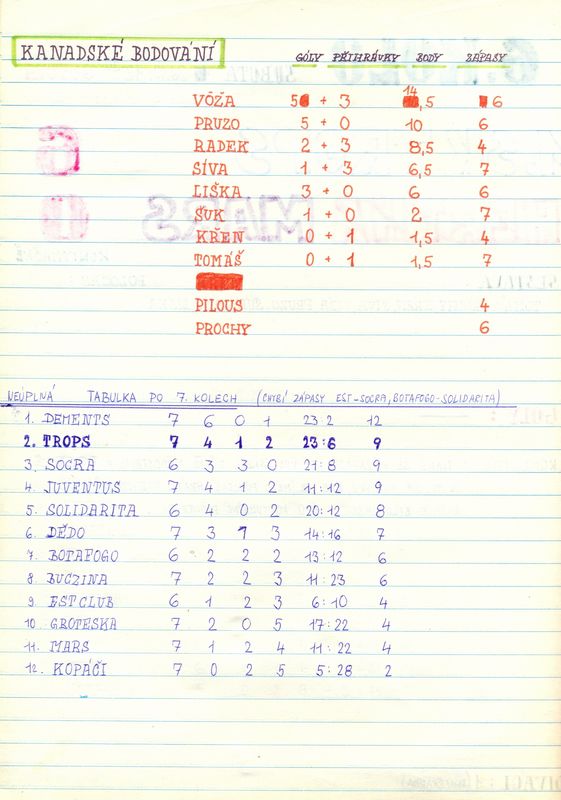 KANADSKÉ BODOVÁNÍ GÓLY PŘIHRÁVKY BODY ZÁPASY
VÓŽA 5 + 3 14,5 6
PRUZO 5 + 0 10 6
RADEK 2 + 3 8,5 4
SÍVA 1 + 3 6,5 7
LIŠKA 3 + 0 6 6
ŠUK 1 + 0 2 7
KŘEN 0 + 1 1,5 4
TOMÁŠ 0 + 1 1,5 7
PILOUS 4
PROCHY 6
NEÚPLNÁ TABULKA PO 7. KOLECH (CHYBÍ ZÁPASY EST-SOCRA, BOTAFOGO-SOLIDARITA)
1. DEMENTS 7 6 0 1 23:2 12
2. TROPS 7 4 1 2 23:6 9
3. SOCRA 6 3 3 0 21:8 9
4. JUVENTUS 7 4 1 2 11:12 9
5. SOLIDARITA 6 4 0 2 20:12 8
6. DĚDO 7 3 1 3 14:16 7
7. BOTAFOGO 6 2 2 2 13:12 6
8. BUCZINA 7 2 2 3 11:23 6
9. EST CLUB 6 1 2 3 6:10 4
10. GROTESKA 7 2 0 5 17:22 4
11. MARS 7 1 2 4 11:22 4
12. KOPÁČI 7 0 2 5 5:28 2